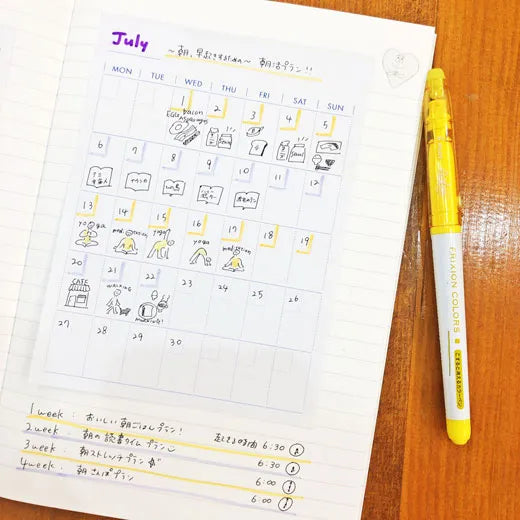 July
〜朝、早起きすれば〜 朝活プラン!!
MON TUE WED THU FRI SAT SUN
1 2 3 4 5
EGG bacon
sausages
6 7 8 9 10 11 12
13 14 15 16 17 18 19
yoga meditation yoga yoga meditation
20 21 22 23 24 25 26
CAFE walking
morning!
27 28 29 30
1week: おいしい朝ごはんプラン!
2week: 朝の読書タイムプラン 起きる時間 6:30
3week: 朝ストレッチプラン 6:30
4week: 朝さんぽプラン 6:00
6:00
FRIXION COLORS
こすると消えるカラーペン